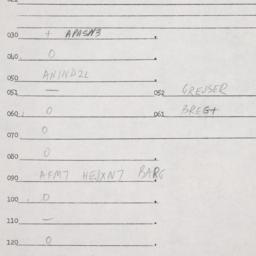 030 + APASN3
040 0
050 AN1ND2L
051 — 052 GREUSER
060 0 061 BREGT
070 0
080 0
090 AFM7 HEJXN7 BARG
100 0
110 —
120 0